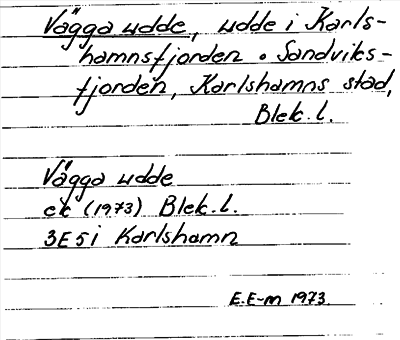 Vägga udde, udde i Karls-
hamnsfjorden o. Sandviks-
fjorden, Karlshamns stad,
Blek. l.
Vägga udde
ek (1973) Blek. l.
3E 5 i Karlshamn
E.E-m 1973